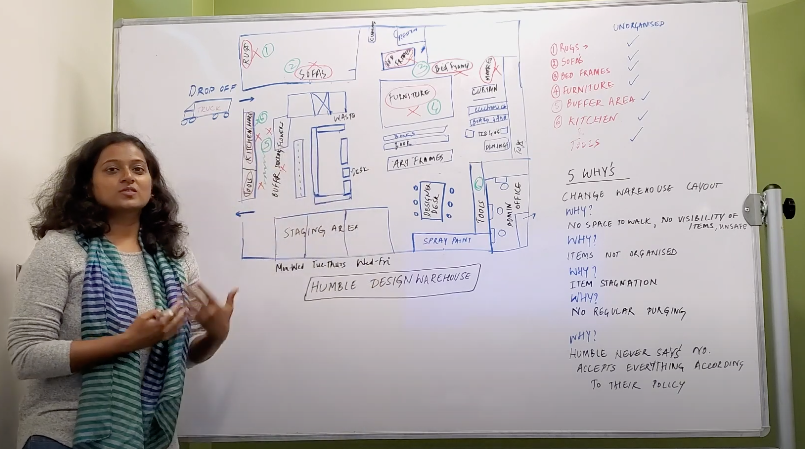 DROP OFF
TRUCK
RUGS
①
②
SOFAS
BED FRAMES
③
Bed frames
FURNITURE
④
CURTAIN
WASTE
KITCHEN WARE
TOOLS
⑥
⑤
BUFFER
FLOWERS
DESK
BOOKS
ART FRAMES
DESIGNER DESK
TOOLS
ADMIN OFFICE
STAGING AREA
SPRAY PAINT
Mon-Wed Tue-Thurs Wed-Fri
HUMBLE DESIGN WAREHOUSE
UNORGANISED
① RUGS → ✓
② SOFAS ✓
③ BED FRAMES ✓
④ FURNITURE ✓
⑤ BUFFER AREA ✓
⑥ KITCHEN ✓
TOOLS ✓
5 WHY'S
CHANGE WAREHOUSE LAYOUT
WHY?
NO SPACE TO WALK, NO VISIBILITY OF
ITEMS, UNSAFE
WHY?
ITEMS NOT ORGANISED
WHY?
ITEM STAGNATION
WHY?
NO REGULAR PURGING
WHY?
HUMBLE NEVER SAYS NO.
ACCEPTS EVERYTHING ACCORDING
TO THEIR POLICY